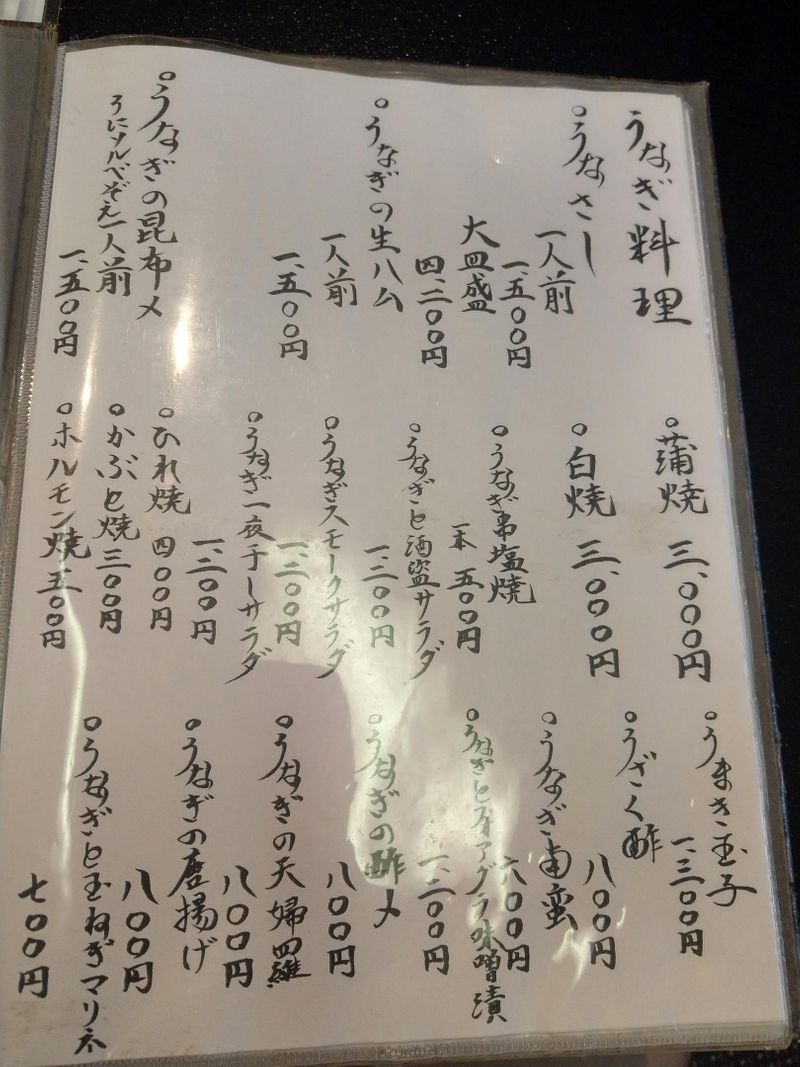 うなぎ料理
○うなさし
一人前
一、五〇〇円
大皿盛
四、二〇〇円
○うなぎの生ハム
一人前
一、五〇〇円
○うなぎの昆布〆
うにソルベぞえ一人前
一、五〇〇円
○蒲焼 三、〇〇〇円
○白焼 三、〇〇〇円
○うなぎ串塩焼
一本 五〇〇円
○うなぎと酒盗サラダ
一、二〇〇円
○うなぎスモークサラダ
一、二〇〇円
○うなぎ一夜干しサラダ
一、二〇〇円
○ひれ焼 四〇〇円
○かぶと焼 三〇〇円
○ホルモン焼 五〇〇円
○うまき玉子
一、三〇〇円
○うざく酢
八〇〇円
○うなぎ南蛮
六〇〇円
○うなぎとフォアグラ味噌漬
一、二〇〇円
○うなぎの酢〆
八〇〇円
○うなぎの天婦羅
八〇〇円
○うなぎの唐揚げ
八〇〇円
○うなぎと玉ねぎマリネ
七〇〇円